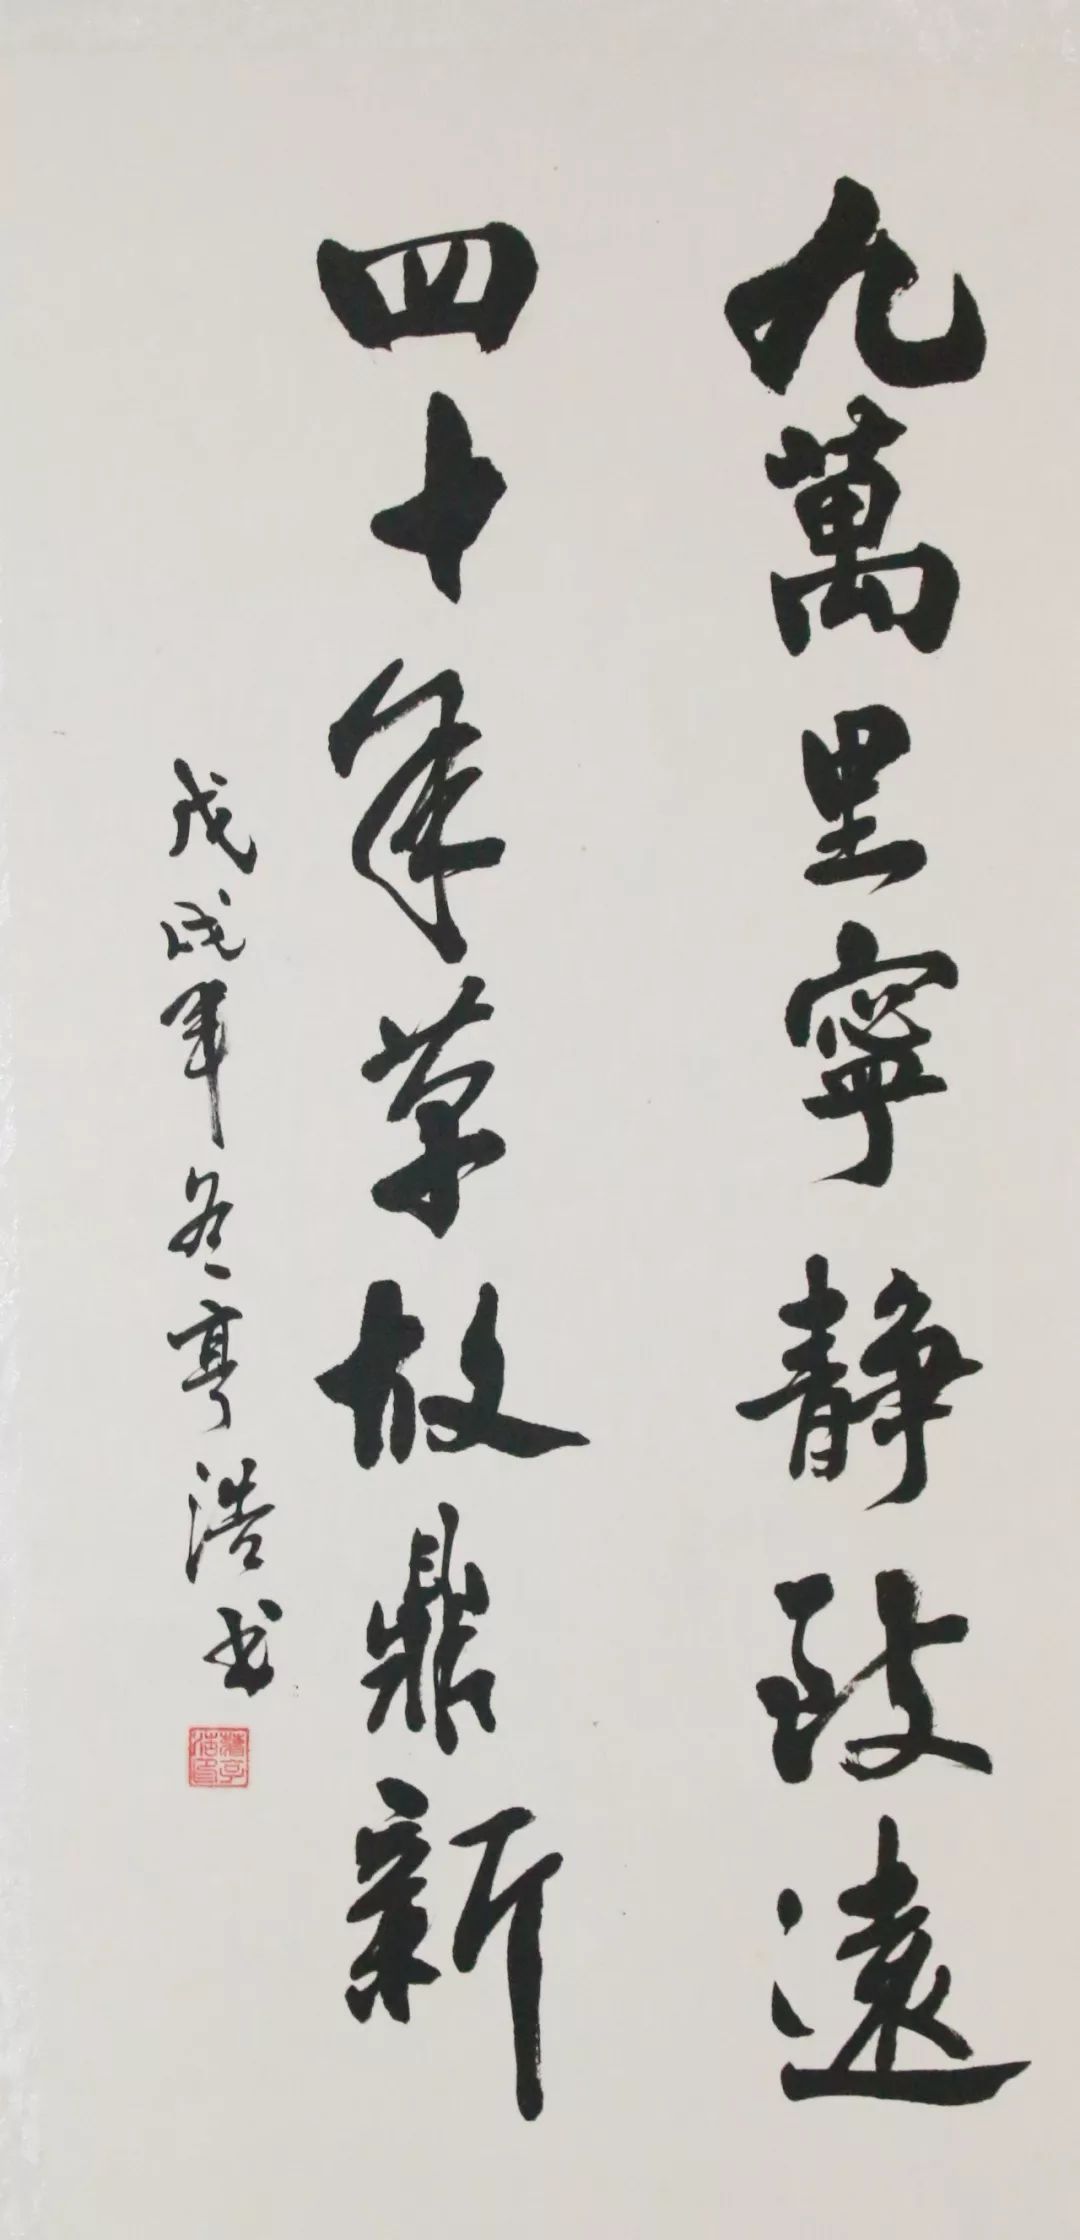 九萬里寧靜致遠
四十年革故鼎新
戊戌年冬亨浩书